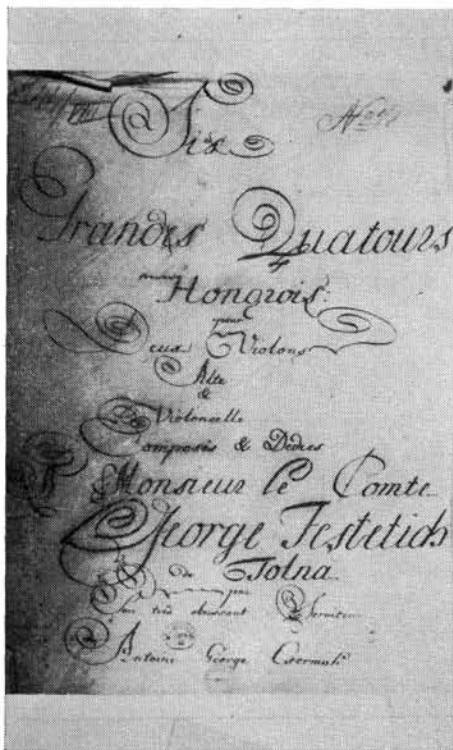 Six
Grandes Quatours
Hongrois
pour
Deux Violons
Alte
&
Violoncelle
Composés & Dédiés
A Monsieur le Comte
George Festetich
de Tolna
par
Son très obeissant Serviteur
Antoine George Csermak